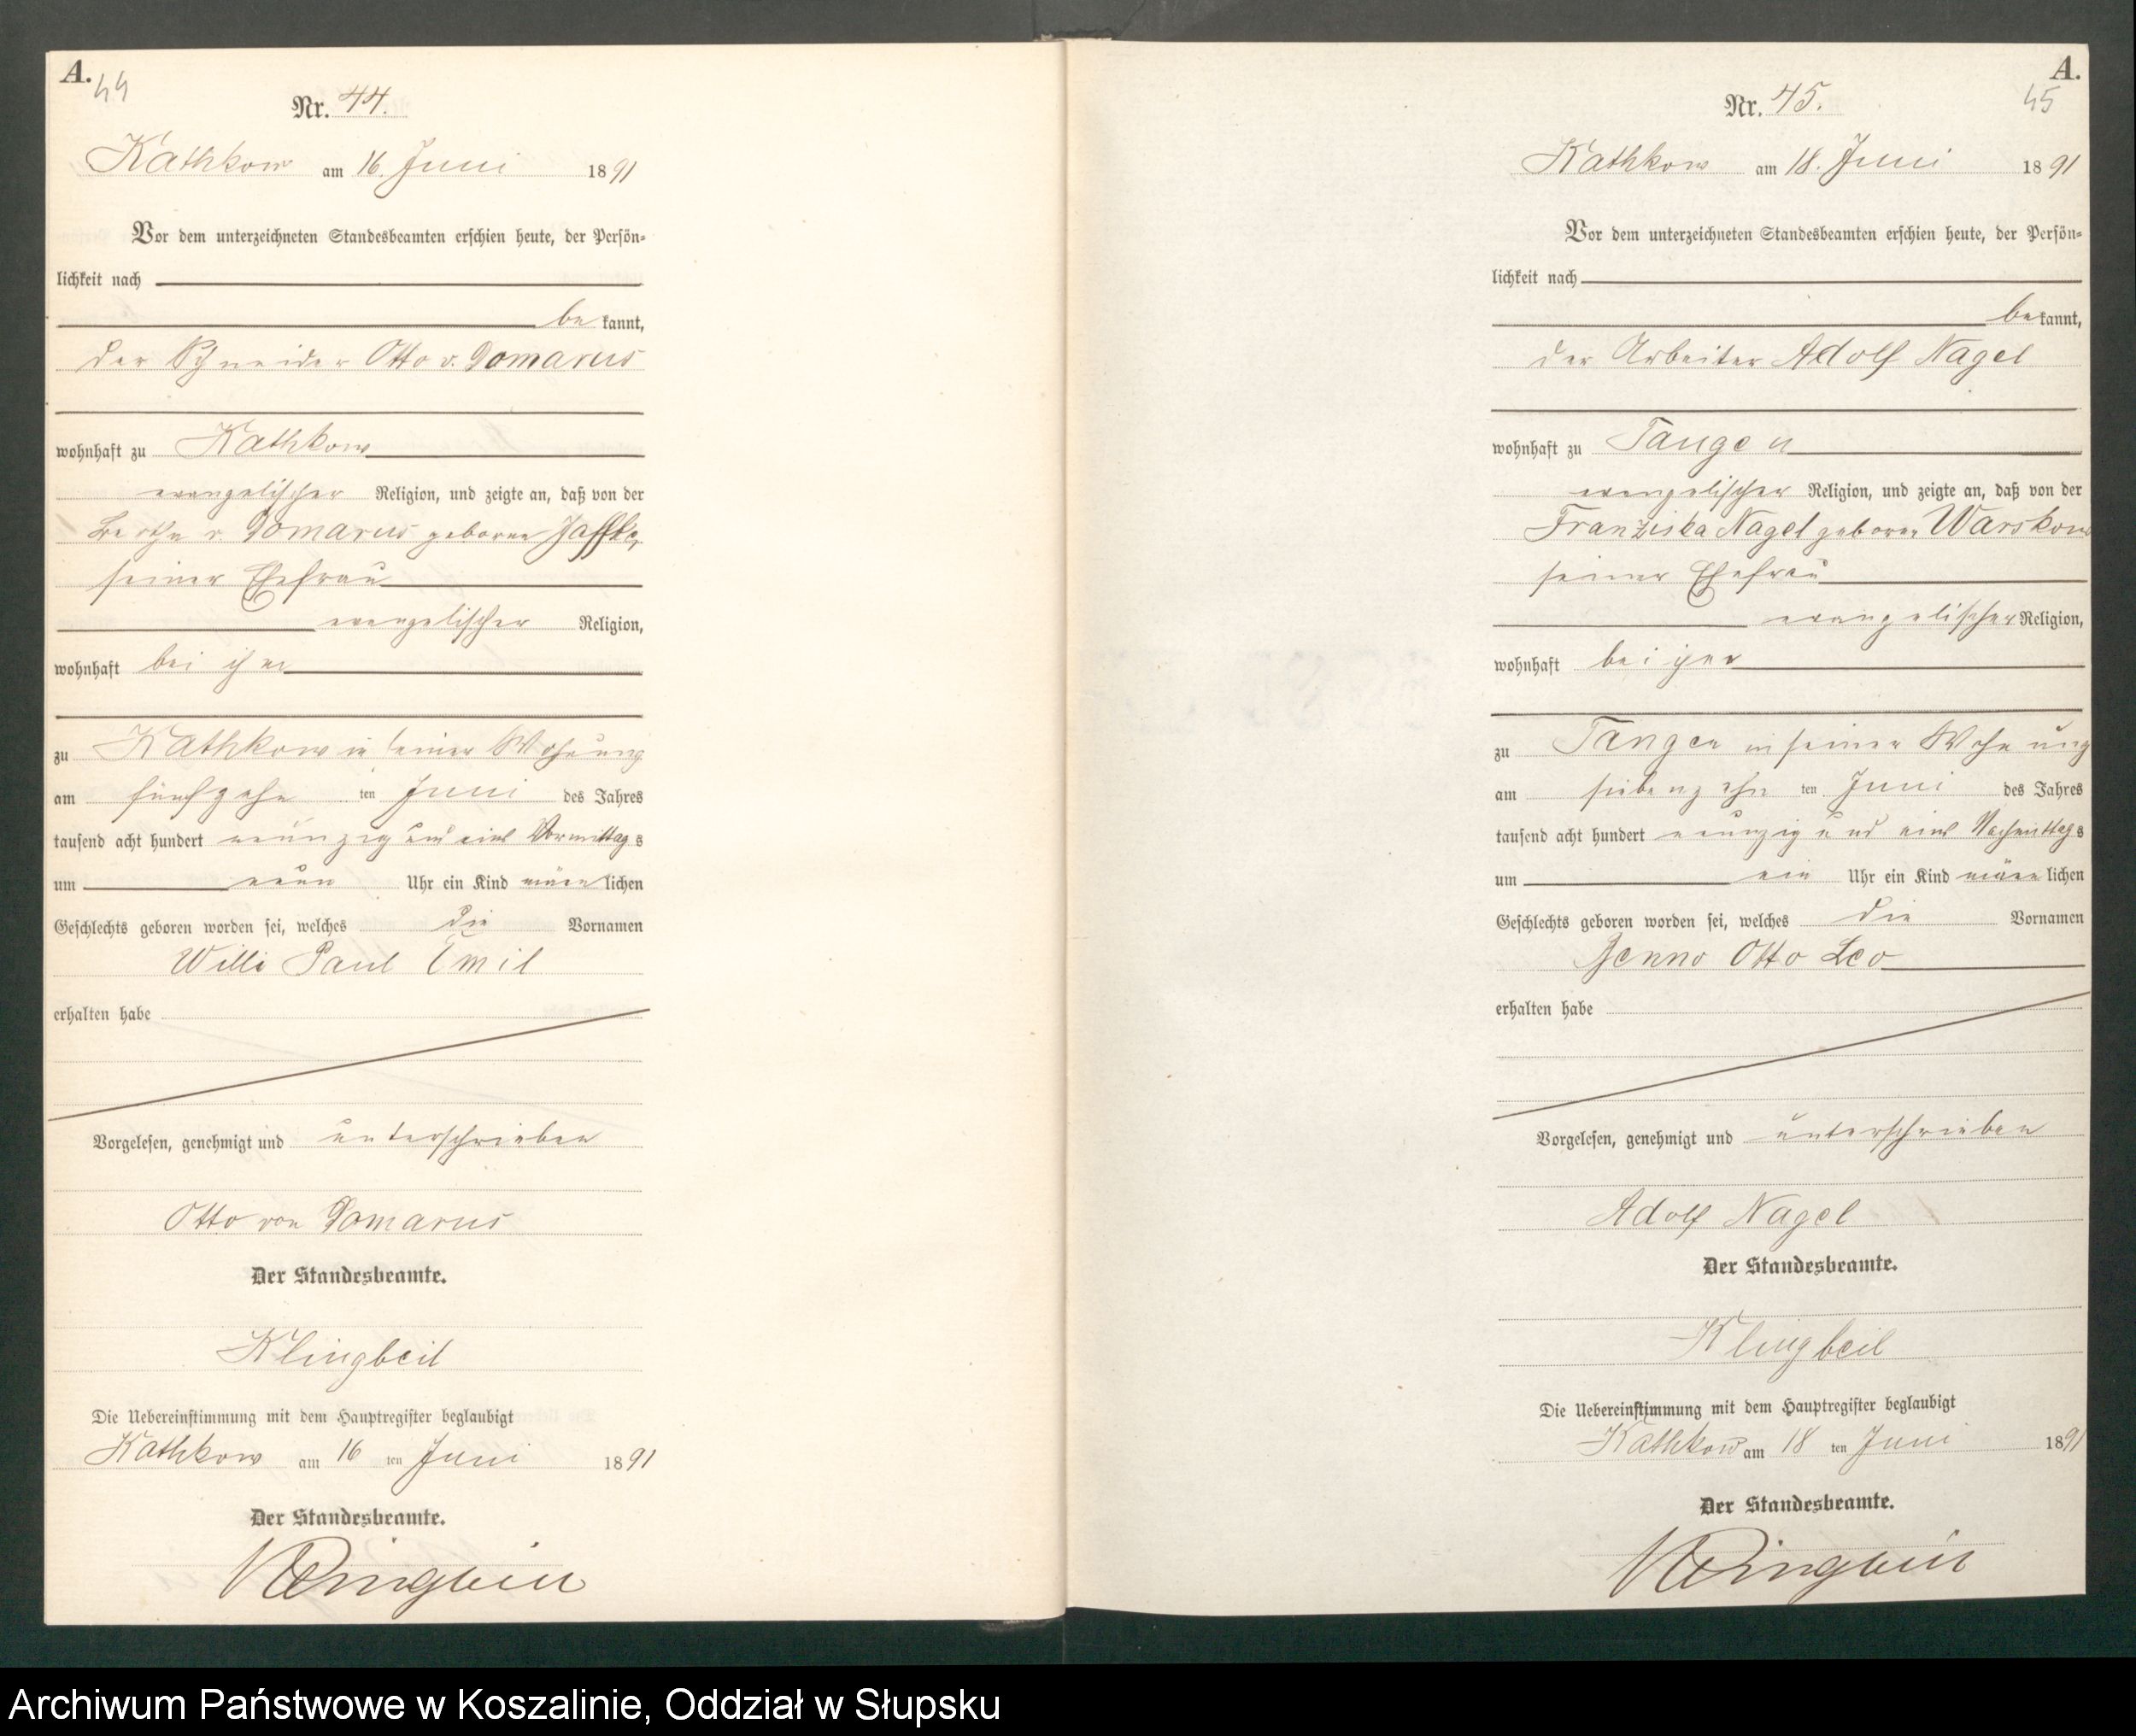 A.
44
Nr. 44.
Kathkow am 16. Juni 1891
Vor dem unterzeichneten Standesbeamten erschien heute, der Persön=
lichkeit nach
bekannt,
der Schneider Otto v. Domarus
wohnhaft zu Kathkow
evangelischer Religion, und zeigte an, daß von der
Bertha v. Domarus geborene Jaffke,
seiner Ehefrau
evangelischer Religion,
wohnhaft bei ihm
zu Kathkow in seiner Wohnung
am fünfzehn ten Juni des Jahres
tausend acht hundert neunzig und eins Vormittags
um neun Uhr ein Kind männlichen
Geschlechts geboren worden sei, welches die Vornamen
Willi Paul Emil
erhalten habe
Vorgelesen, genehmigt und unterschrieben
Otto von Domarus
Der Standesbeamte.
Klingbeil
Die Uebereinstimmung mit dem Hauptregister beglaubigt
Kathkow am 16 ten Juni 1891
Der Standesbeamte.
Klingbeil
A.
45
Nr. 45.
Kathkow am 18. Juni 1891
Vor dem unterzeichneten Standesbeamten erschien heute, der Persön=
lichkeit nach
bekannt,
der Arbeiter Adolf Nagel
wohnhaft zu Tangen
evangelischer Religion, und zeigte an, daß von der
Franziska Nagel geborene Warskow
seiner Ehefrau
evangelischer Religion,
wohnhaft bei ihm
zu Tangen in seiner Wohnung
am siebenzehn ten Juni des Jahres
tausend acht hundert neunzig und eins Nachmittags
um ein Uhr ein Kind männlichen
Geschlechts geboren worden sei, welches die Vornamen
Benno Otto Leo
erhalten habe
Vorgelesen, genehmigt und unterschrieben
Adolf Nagel
Der Standesbeamte.
Klingbeil
Die Uebereinstimmung mit dem Hauptregister beglaubigt
Kathkow am 18 ten Juni 1891
Der Standesbeamte.
Klingbeil
Archiwum Państwowe w Koszalinie, Oddział w Słupsku